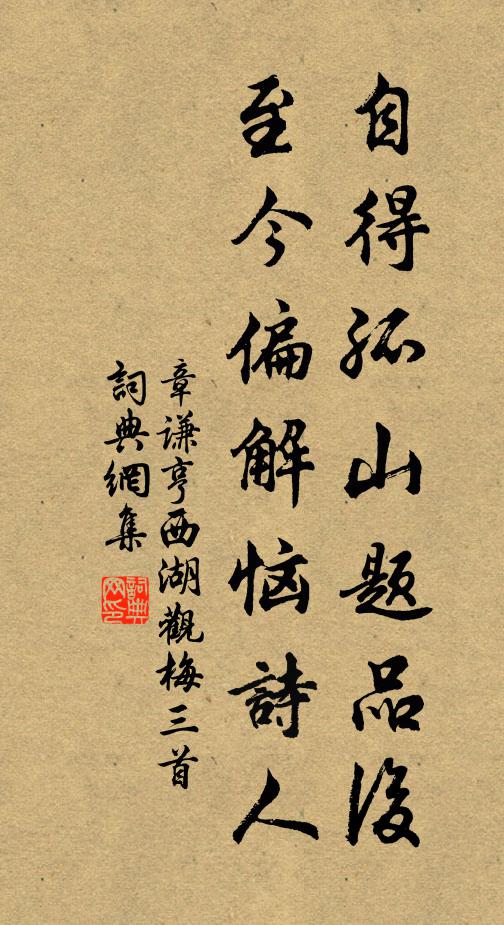 自得孤山题品後
至今偏解恼詩人
章谦亨西湖觀梅三首
詞典網集
詞典網印